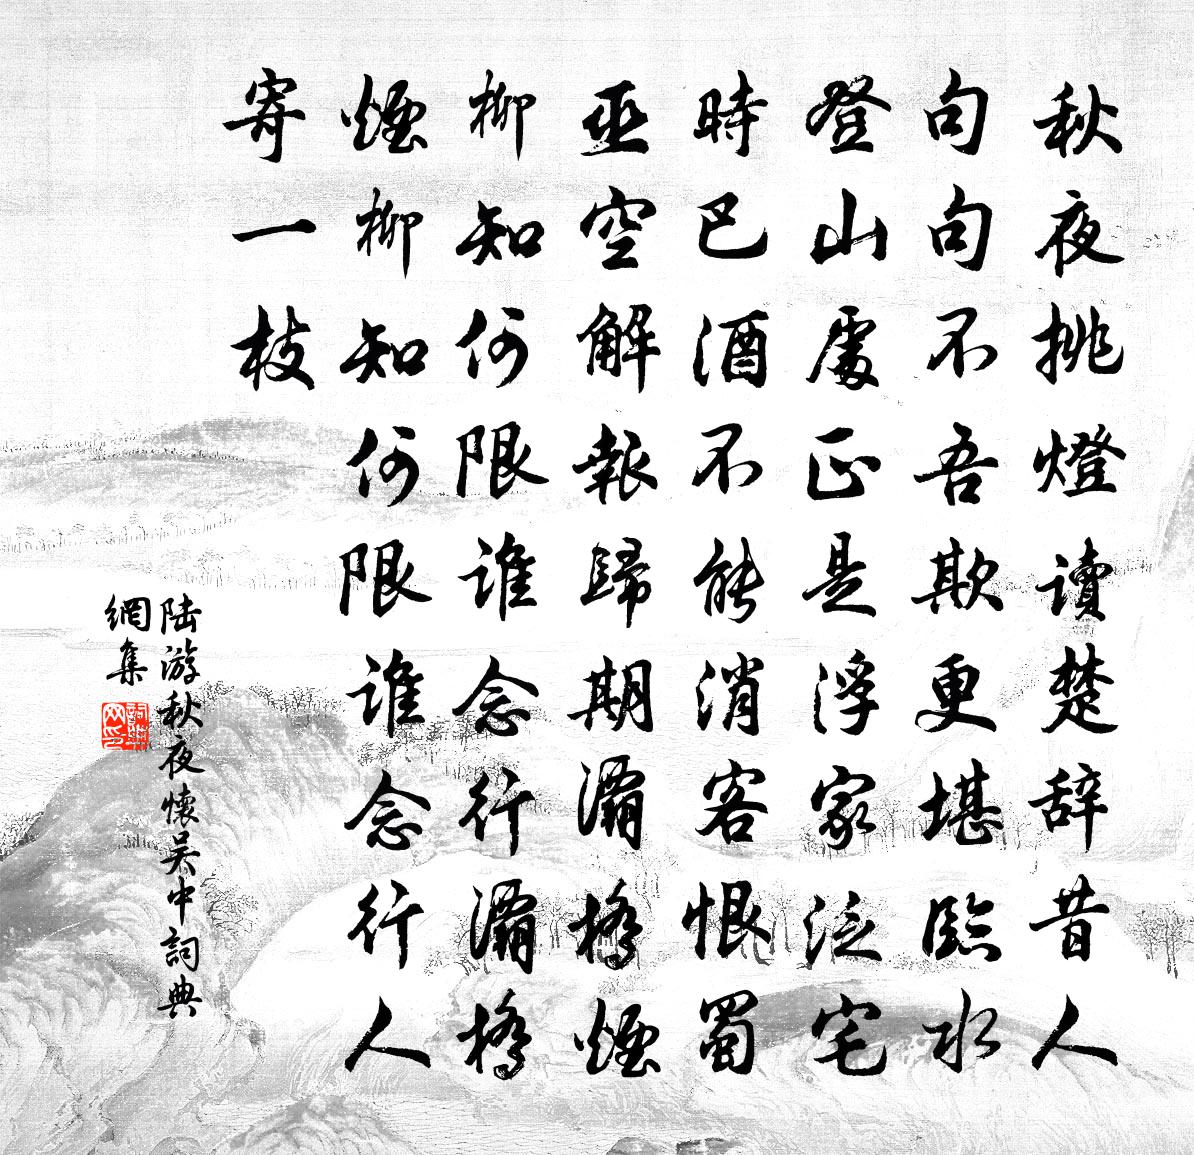 秋夜挑燈讀楚辞昔人
句句不吾欺更堪臨水
登山處正是浮家泛宅
時巴酒不能消客恨蜀
巫空解報歸期灞橋煙
柳知何限誰念行灞橋
煙柳知何限誰念行人
寄一枝
陆游秋夜懷吴中 詞典
網集